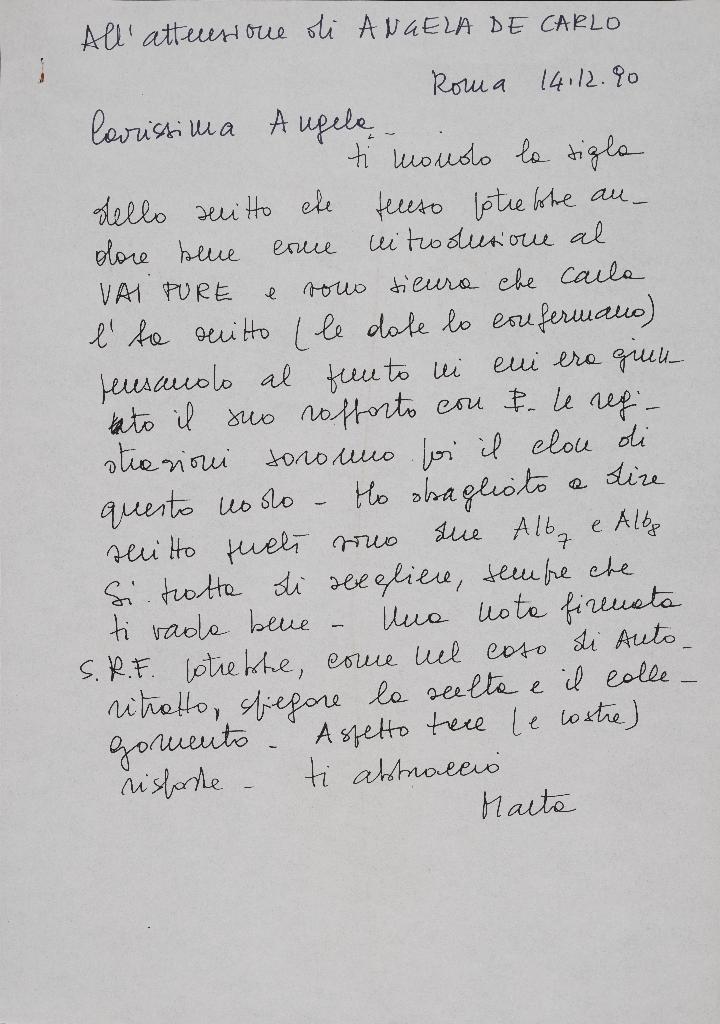 All'attenzione di ANGELA DE CARLO
Roma 14.12.90
Carissima Angela -
ti mando la sigla
dello scritto che penso potrebbe an-
dare bene come introduzione al
VAI PURE e sono sicura che Carla
l'ha scritto (le date lo confermano)
pensando al punto in cui era giun-
to il suo rapporto con P. le regi-
strazioni saranno poi il clou di
questo nodo - Ho sbagliato a dire
scritto perché sono due Alb7 e Alb8
Si tratta di scegliere, sempre che
ti vada bene - Una nota firmata
S.R.F. potrebbe, come nel caso di Auto-
ritratto, spiegare la scelta e il colle-
gamento - Aspetto tue (e vostre)
risposte - ti abbraccio
Marta